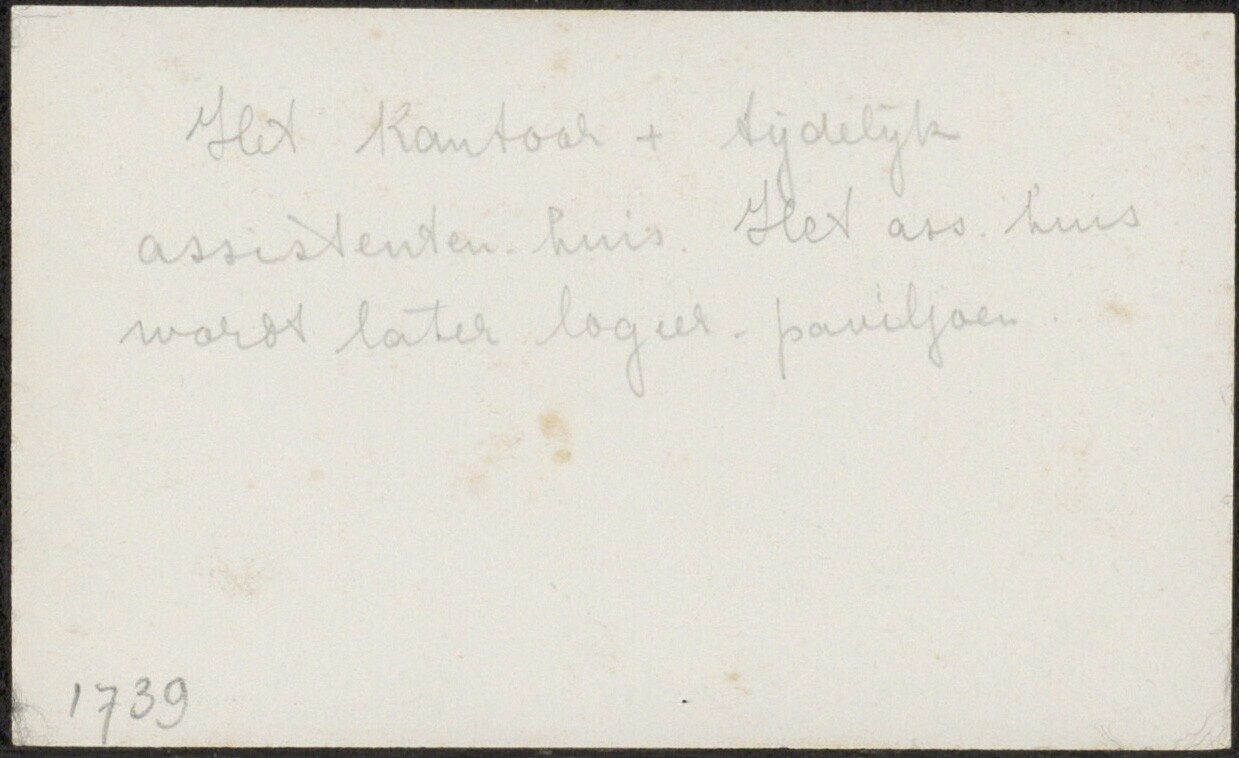 Het Kantoor + tijdelijk
assistenten-huis. Het ass. huis
wordt later logeer-paviljoen.
1739